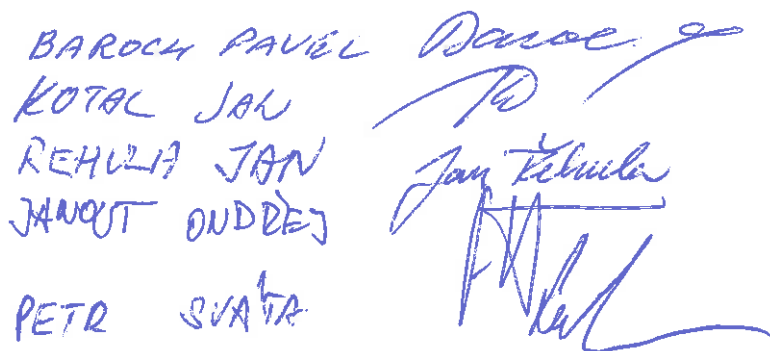 BAROCH PAVEL
KOTAL JAN
REHULA JAN Jan Řehula
JANOUT ONDŘEJ
PETR SVAŤA